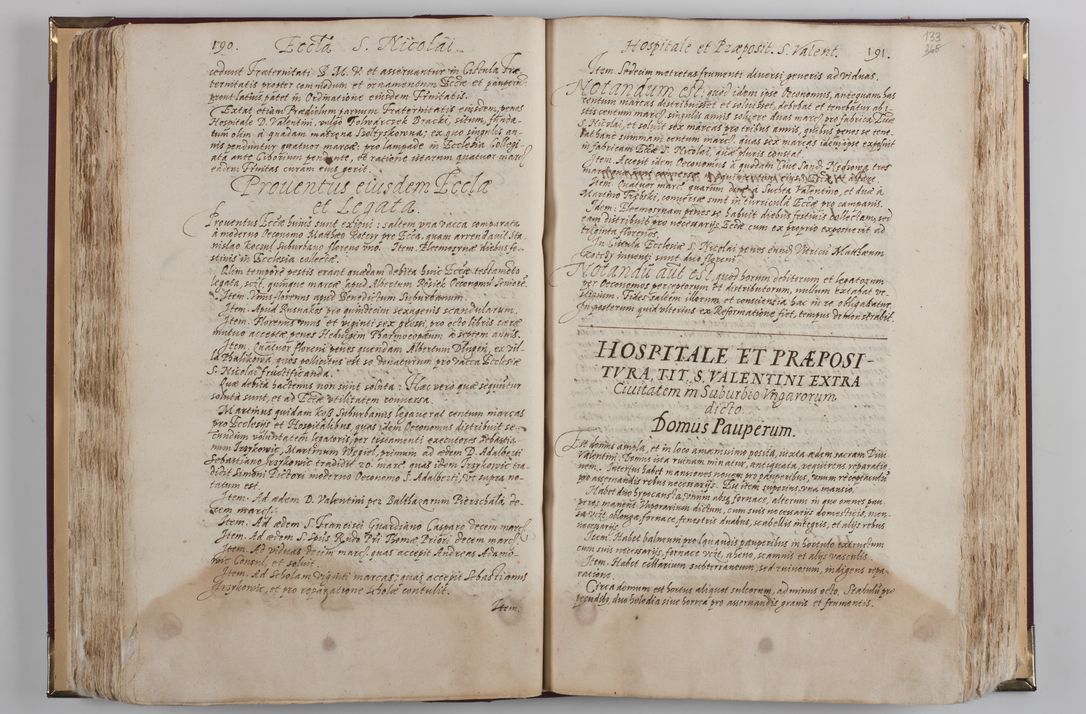 190. Eccła S. Nicolai.
cedunt Fraternitati B. M. V. et asseruantur in Cistula Fra-
ternitatis propter commodum et ornamentum Eccłæ et pauperum
prout latius patet in Ordinatione eiusdem Ciuitatis.
Extat etiam Prædiolum paruum Fraternitatis eiusdem, penes
Hospitale D. Valentini, vulgo Tomarczek Bracki, situm, funda-
tum olim à quadam matrona Szoltyskowna; ex quo singulis an-
nis penduntur quatuor marcæ: pro lampade in Ecclesia Collegi
ata ante Ciborium pendente, et ratione istarum quatuor marc
eadem Ciuitas curam eius gerit.
Prouentus eiusdem Eccłæ
et Legata.
Prouentus Eccłæ huius sunt exigui: saltem vna vacca comparata
à moderno Oeconomo Matthæo Kotcsy pro Eccła, quam arrendauit Sta-
nislao Kocsul Suburbano floreno vno. Item. Eleemosynæ diebus fe-
stiuis in Ecclesia collectæ.
Olim tempore pestis erant quædam debita huic Eccłæ testamēto
legata, sczt. quinque marcæ apud Albertum Rosiek Oeconomum Seniorē.
Item. Vnus florenus apud Benedictum Suburbanum.
Item. Apud Rusnakos pro quindecim sexagenis scandularum.
Item. Florenus vnus et viginti sex grossi, pro octo libris caræ
mutuo acceptæ penes Heduigim Pharmocopæam à septem annis.
Item. Quatuor floreni penes quendam Albertum Dlugon, ex vil-
la Babikowa, quos pollicitus est se donaturum pro vacca Ecclesiæ
S. Nicolai fructificanda.
Quæ debita hactenus non sunt soluta: Hæc verò quæ sequuntur
soluta sunt, et ad Eccłæ vtilitatem conuersa.
Martinus quidam Kuś Suburbanus legauerat centum marcas
pro Ecclesijs et Hospitalibus, quas idem Oeconomus distribuit se-
cundum voluntatem legatoris, per testamenti executores Sebastia-
num Jrzykowic, Martinum Węgiel, primum ad ædem D. Adalberti
Sebastiano Jrzykowic tradidit 20. marc. quas idem Jrzykowic tra-
didit Simoni Pictori moderno Oeconomo S. Adalberti, vt supra no-
tatum est.
Item. Ad ædem D. Valentini per Balthazarum Pierschala, de-
cem marc.
Item. Ad ædem S. Francisci Guardiano Casparo decem marc.
Item. Ad ædem S. Spūs Rndo Ptr Thomæ Priori decem marc.
Item. Ad viduas decem marc. quas accepit Andreas Adamo-
wic Consul, et soluit.
Item. Ad Scholam viginti marcas; quas accepit Sebastianus
Jrzykowic, et pro reparatione Scholæ contulit.
Item.
Hospitale et Præposit. S. Valent. 191.
133
Item. Sedecim metretas frumenti diuersi generis ad viduas.
Notandum est; quod idem ipse Oeconomus, antequam has
centum marcas distribuisset et soluisset, debebat et tenebatur ab
istis centum marc. singulis annis soluere duas marc. pro fabrica Eccłæ
S. Nicolai, et soluit sex marcas pro tribus annis, quibus penes se tene-
bat hanc summam centum marc. quas sex marcas idem ipse exposuit
in fabricam Eccłæ S. Nicolai, quæ pluris constat.
Item. Accepit idem Oeconomus à quodam Ciue Sand. Niedzwia tres
marcas
Item. Quatuor marc. quarum duæ à Suchta Valentino, et duæ à
Martino Tębski, conuersæ sunt in turricula Eccłæ pro campanis.
Idem: Eleemosynam penes se habuit diebus festiuis collectam, sed
eam distribuit pro necessarijs Eccłæ cum ex proprio exposuerit ad
triginta florenos.
In Cistula Ecclesiæ S. Nicolai penes eundē Vitricū Matthæum
Kotcsy inuenti sunt duo floreni.
Notandū aut est, quod horum debitorum et legatorum
per Oeconomos perceptorum et distributorum, nullum extabat ve-
stigium. Fides saltem illorum et conscientia hac in re obligabatur.
In posterum quid vlterius ex Reformatione fiet, tempus demonstrabit.
HOSPITALE ET PRÆPOSI-
TVRA, TIT. S. VALENTINI EXTRA
Ciuitatem in Suburbio Vngarorum
dicto.
Domus Pauperum.
Est domus ampla, et in loco amœnissimo posita, iuxta ædem sacram Diui
Valentini. Domus ista ruinam minatur, antiquata, requirens reparatio-
nem. Interius habet mansiones nouem pro pauperibus, vnum receptaculū
pro asseruandis rebus necessarijs. Est item superius vna mansio.
Habet duo hypocausta, vnum absq. fornace, alterum in quo omnes pau-
peres manent Vaporarium dictum, cum suis necessarijs domesticis, men-
sa vczt. oblonga, fornace, fenestris duabus, scabellis integris, et alijs rebus
necessarijs.
Item. Habet balneum pro lauandis pauperibus in hortulo extructum
cum suis necessarijs, fornace vczt. aheno, scamnis et alijs vasculis.
Item. Habet cellarium subterraneum, sed ruinosum, indigens repa-
ratione.
Circa domum est hortus aliquot sulcorum, ad minus octo. Stabulū pro
pecudibq. duo holodia siue horrea pro asseruandis granis et frumentis.